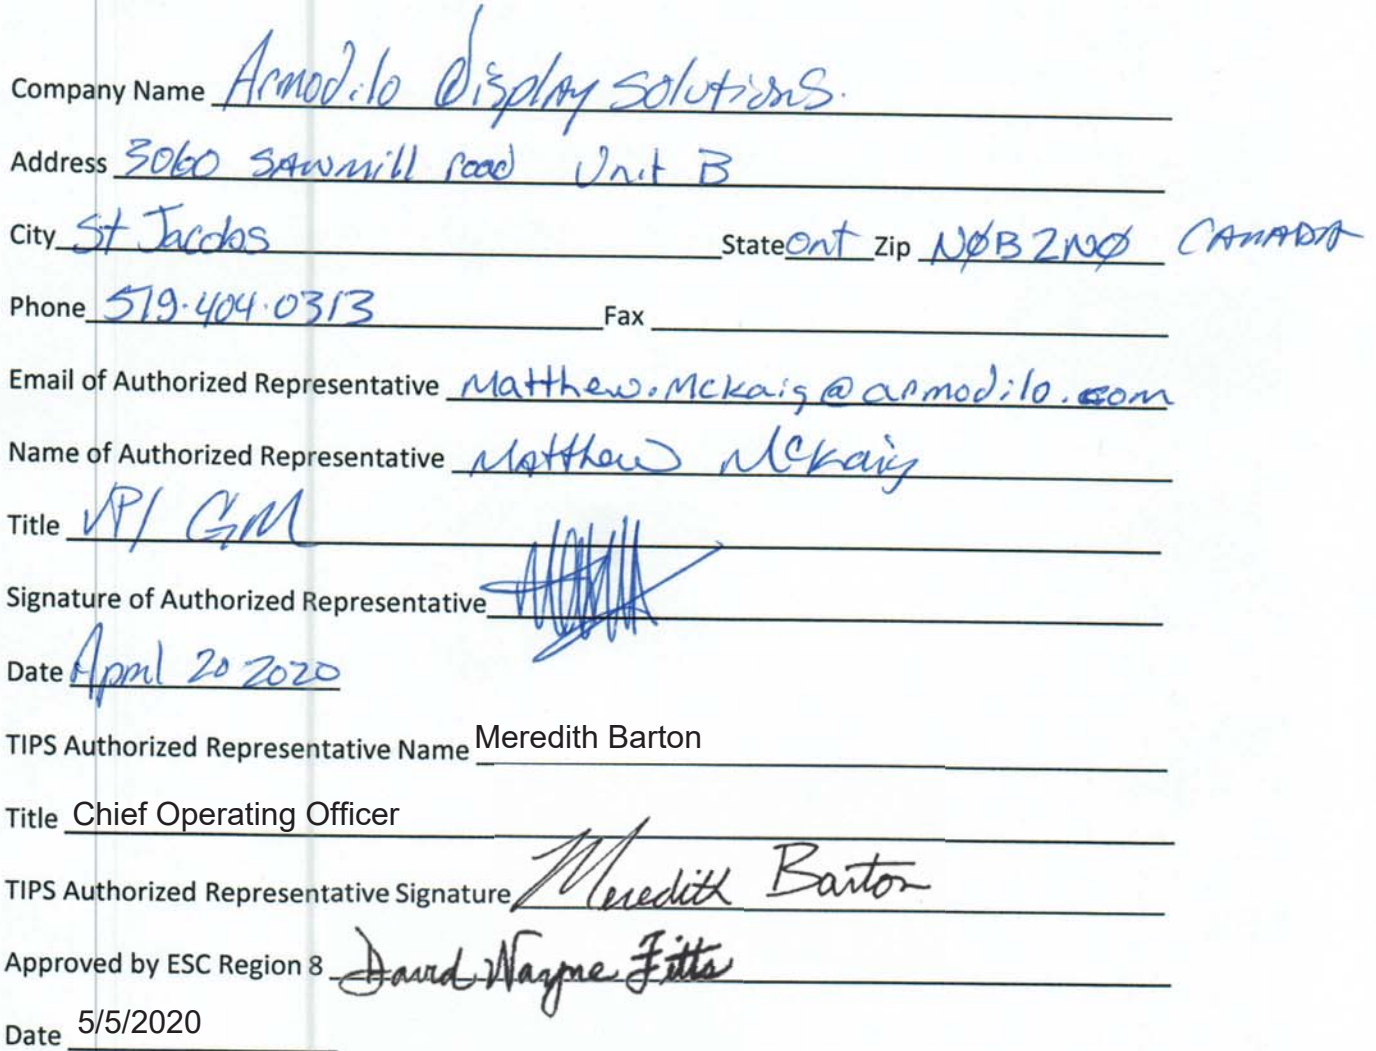 Company Name Armodilo Display Solutions.
Address 3060 Sawmill road Unit B
City St Jacobs State Ont Zip NØB 2NØ CANADA
Phone 519.404.0313 Fax
Email of Authorized Representative Matthew.Mckaig@armodilo.com
Name of Authorized Representative Matthew McKaig
Title VP/ GM
Signature of Authorized Representative
Date April 20 2020
TIPS Authorized Representative Name Meredith Barton
Title Chief Operating Officer
TIPS Authorized Representative Signature Meredith Barton
Approved by ESC Region 8 David Wayne Fitts
Date 5/5/2020